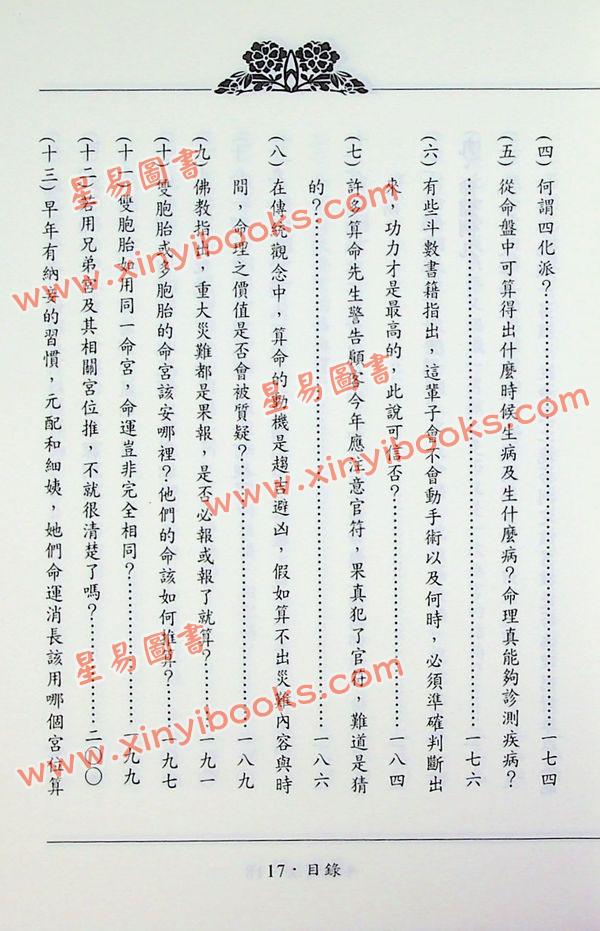 (四)何謂四化派?……一七四
(五)從命盤中可算得出什麼時候生病及生什麼病?命理真能夠診測疾病?
……一七六
(六)有些斗數書籍指出,這輩子會不會動手術以及何時,必須準確判斷出
來,功力才是最高的,此說可信否?……一八四
(七)許多算命先生警告顧客今年應注意官符,果真犯了官符,難道是猜
的?……一八六
(八)在傳統觀念中,算命的動機是趨吉避凶,假如算不出災難內容與時
間,命理之價值是否會被質疑?……一八九
(九)佛教指出,重大災難都是果報,是否必報或報了就算?……一九一
(十)雙胞胎或多胞胎的命宮該安哪裡?他們的命該如何推算?……一九七
(十一)雙胞胎如用同一命宮,命運豈非完全相同?……一九九
(十二)若用兄弟宮及其相關宮位推,不就很清楚了嗎?……二〇〇
(十三)早年有納妾的習慣,元配和細姨,她們命運消長該用哪個宮位算
17·目錄
星易圖書
www.xinyibooks.com
星易圖書
www.xinyibooks.com
星易圖書
www.xinyibooks.com